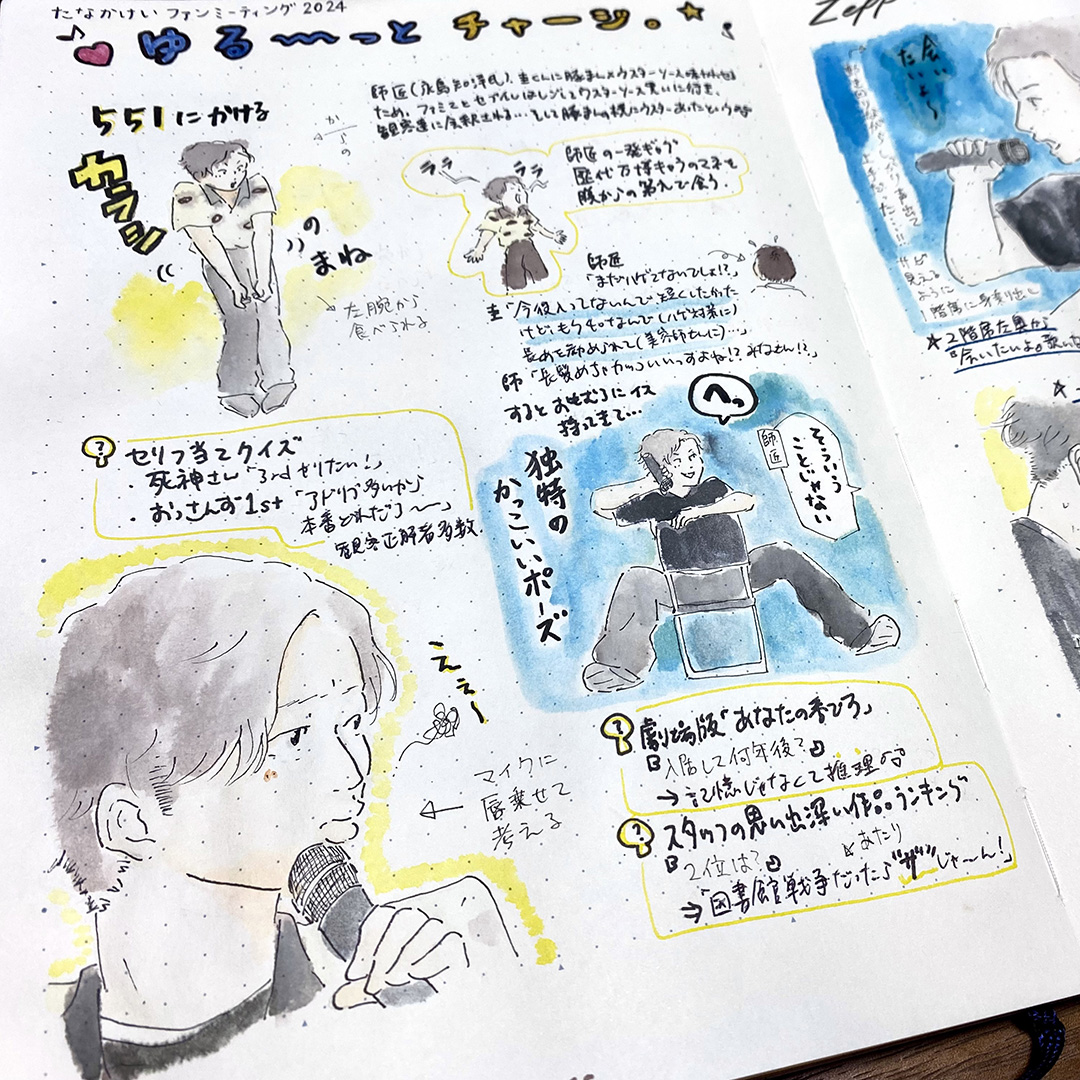 たなかけい ファンミーティング 2024
ゆる〜〜っと チャージ。
師匠(永島知洋氏)、圭くんに豚まん×ウスターソース味わわせる
ため、ファミマとセブイレはしごしてウスターソース買いに行き、
観客達に
551にかける
からの
カラシ
の
まね
左腕から
食べられる
ララ
ララ
師匠の一発ギャグ
歴代万博きゃらのマネを
腹からの第九で会う.
師匠
「まだハゲてないでしょ!?」
圭「今役入ってないんで短くしたかった
けど、もう40なんで(ハゲ対策に)
長めを勧められて(美容師さんに)…」
師「長髪めちゃカッコいいっすよね!?みなさん!?」
するとおもむろにイス
持ってきて…
へっ
師匠
そういう
ことじゃない
独特の
かっこいいポーズ
? セリフ当てクイズ
・死神さん「3rdやりたい!」
・おっさんず1st「アドリブ多いから
本番どれだ?〜〜」
観客正解者多数.
えぇー
マイクに
唇乗せて
考える
? 劇場版「あなたの番です」
入居して何年後?
→記憶じゃなくて推理
? スタッフの思い出深い作品ランキング
2位は?
あたり
⇒「図書館戦争だったら“ザ”じゃーん!」
Zepp
会いたいよ〜
見える
ように
1階席に身乗り出し
★2階席左奥から
「会いたいよ」歌い